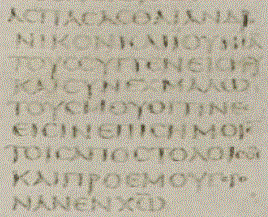 ΑCΠΑCΑCΘΑΙΑΝΔΡ
ΝΙΚΟΝΚΑΙΙΟΥΝΙΑ
ΤΟΥCCΥΓΓΕΝΕΙC
ΚΑΙCΥΝΕΧΜΑΛΩ
ΤΟΥCΜΟΥΟΙΤΙΝΕ
ΕΙCΙΝΕΠΙCΗΜΟΙ
ΤΟΙCΑΠΟCΤΟΛΟΙC
ΚΑΙΠΡΟΕΜΟΥΓΕΓΟ
ΝΑΝΕΝΧΩ